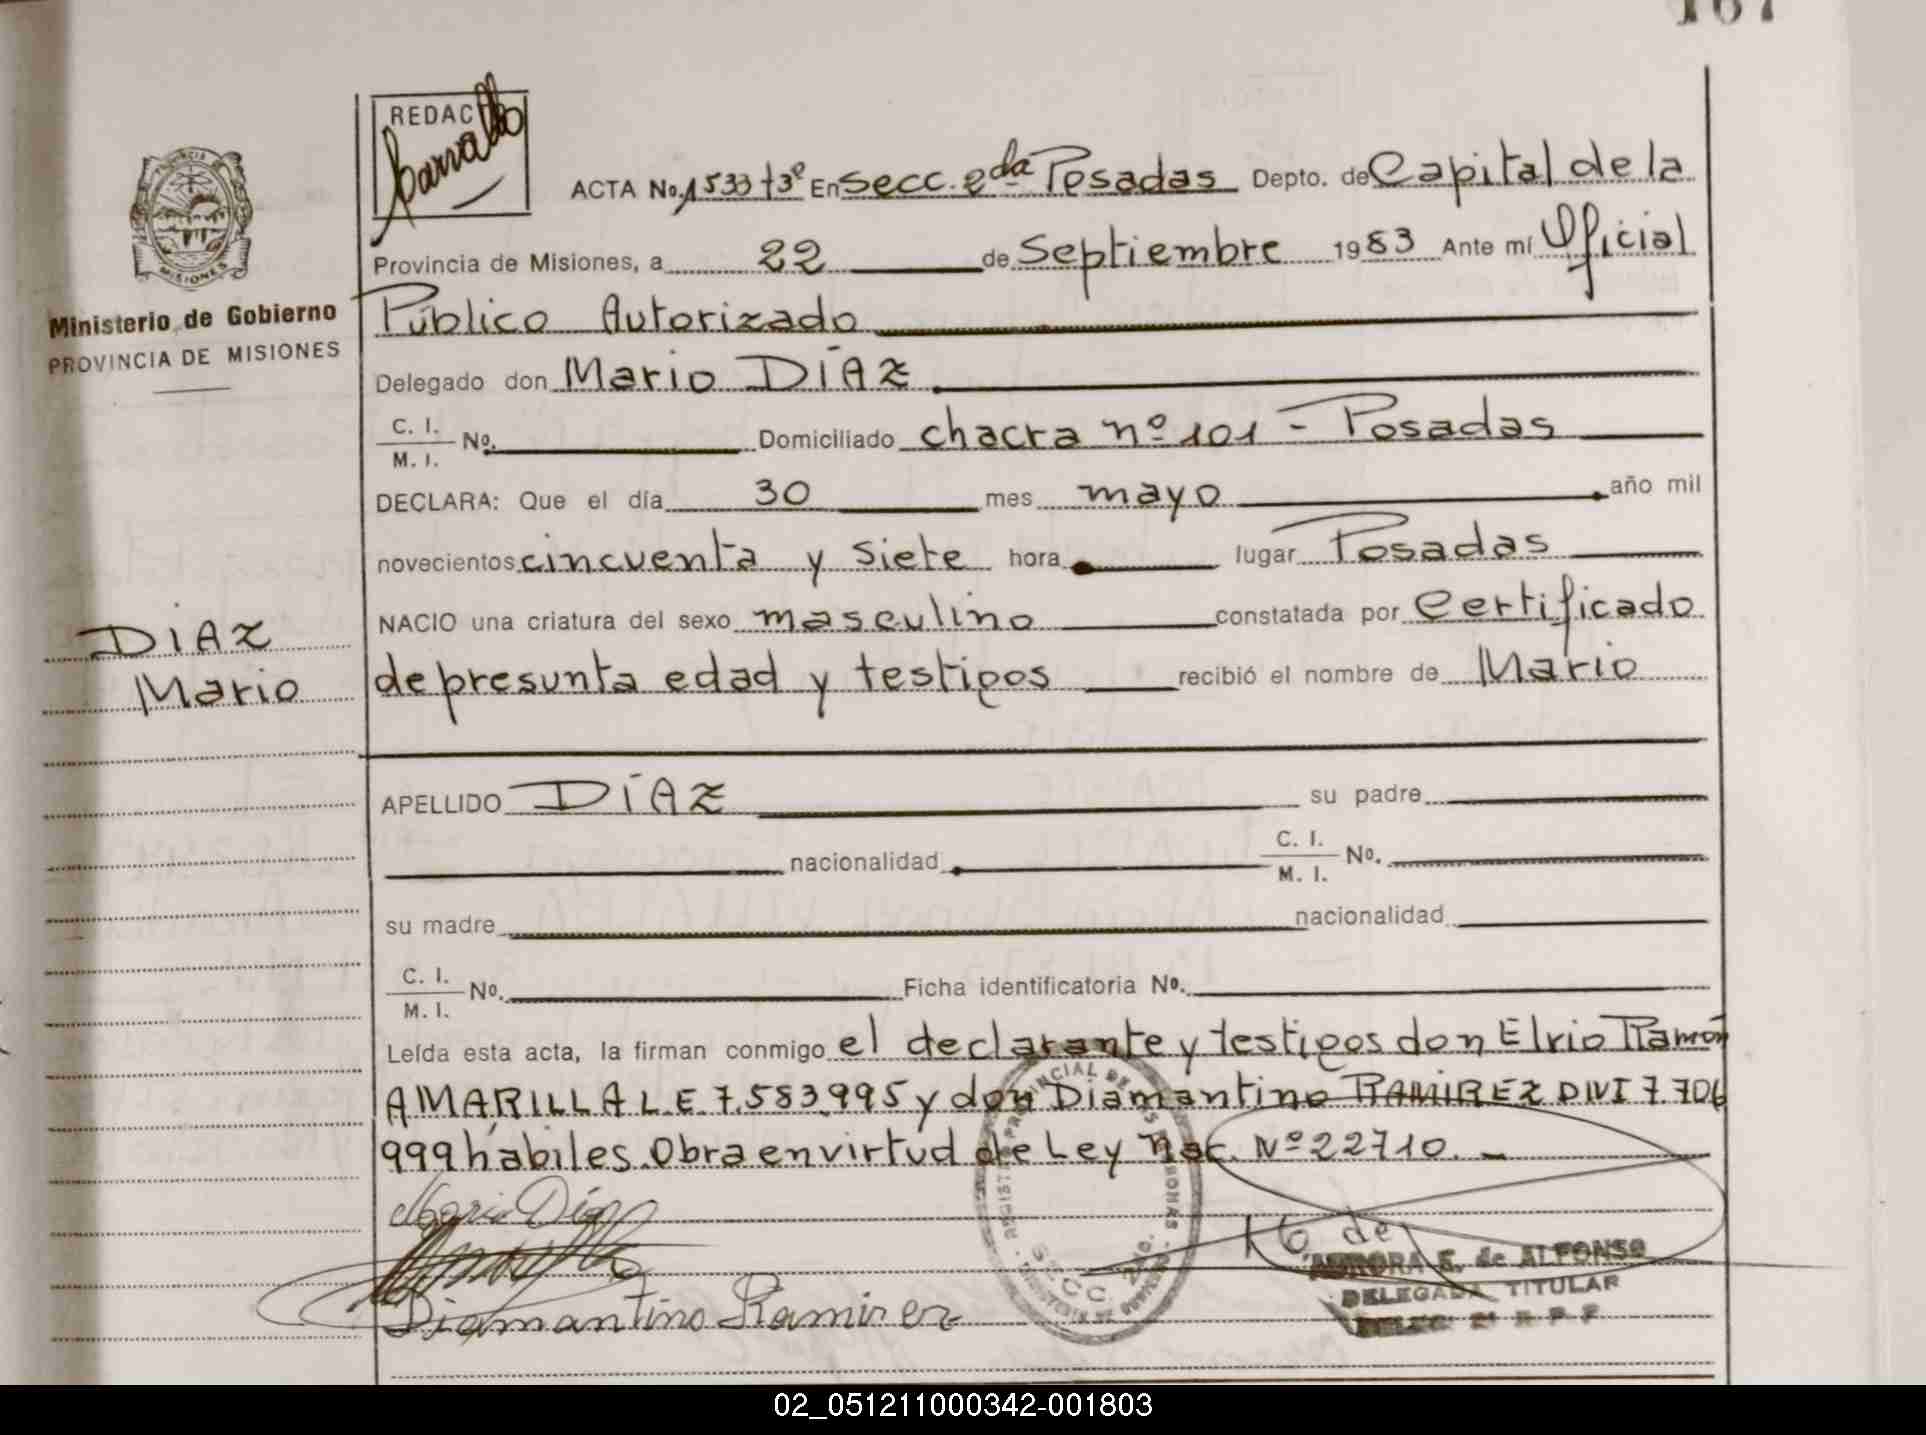 167
REDAC
Carvallo
ACTA No. 1533 t3º En Secc. 2da Posadas Depto. de Capital de la
Provincia de Misiones, a 22 de Septiembre 1983 Ante mí Oficial
Público Autorizado
Delegado don Mario DÍAZ
C. I.
M. I. No. Domiciliado chacra nº 101 - Posadas
DECLARA: Que el día 30 mes mayo año mil
novecientos cincuenta y siete hora lugar Posadas
NACIO una criatura del sexo masculino constatada por Certificado
de presunta edad y testigos recibió el nombre de Mario
APELLIDO DÍAZ su padre
nacionalidad C. I.
M. I. No.
su madre nacionalidad
C. I.
M. I. No. Ficha identificatoria No.
Leída esta acta, la firman conmigo el declarante y testigos don Elvio Ramón
AMARILLA L.E. 7.583.995 y don Diamantino RAMIREZ DNI 7.706
999 hábiles. Obra en virtud de Ley Nac. Nº 22710. -
Mario Díaz
Diamantino Ramirez
PROVINCIA DE
MISIONES
Ministerio de Gobierno
PROVINCIA DE MISIONES
DIAZ
Mario
REGISTRO PROVINCIAL DE LAS PERSONAS
SECC. 2da.
MINISTERIO DE GOBIERNO
AURORA E. de ALFONSO
DELEGADA TITULAR
DELEG. 2ª R. P. P.
02_051211000342-001803